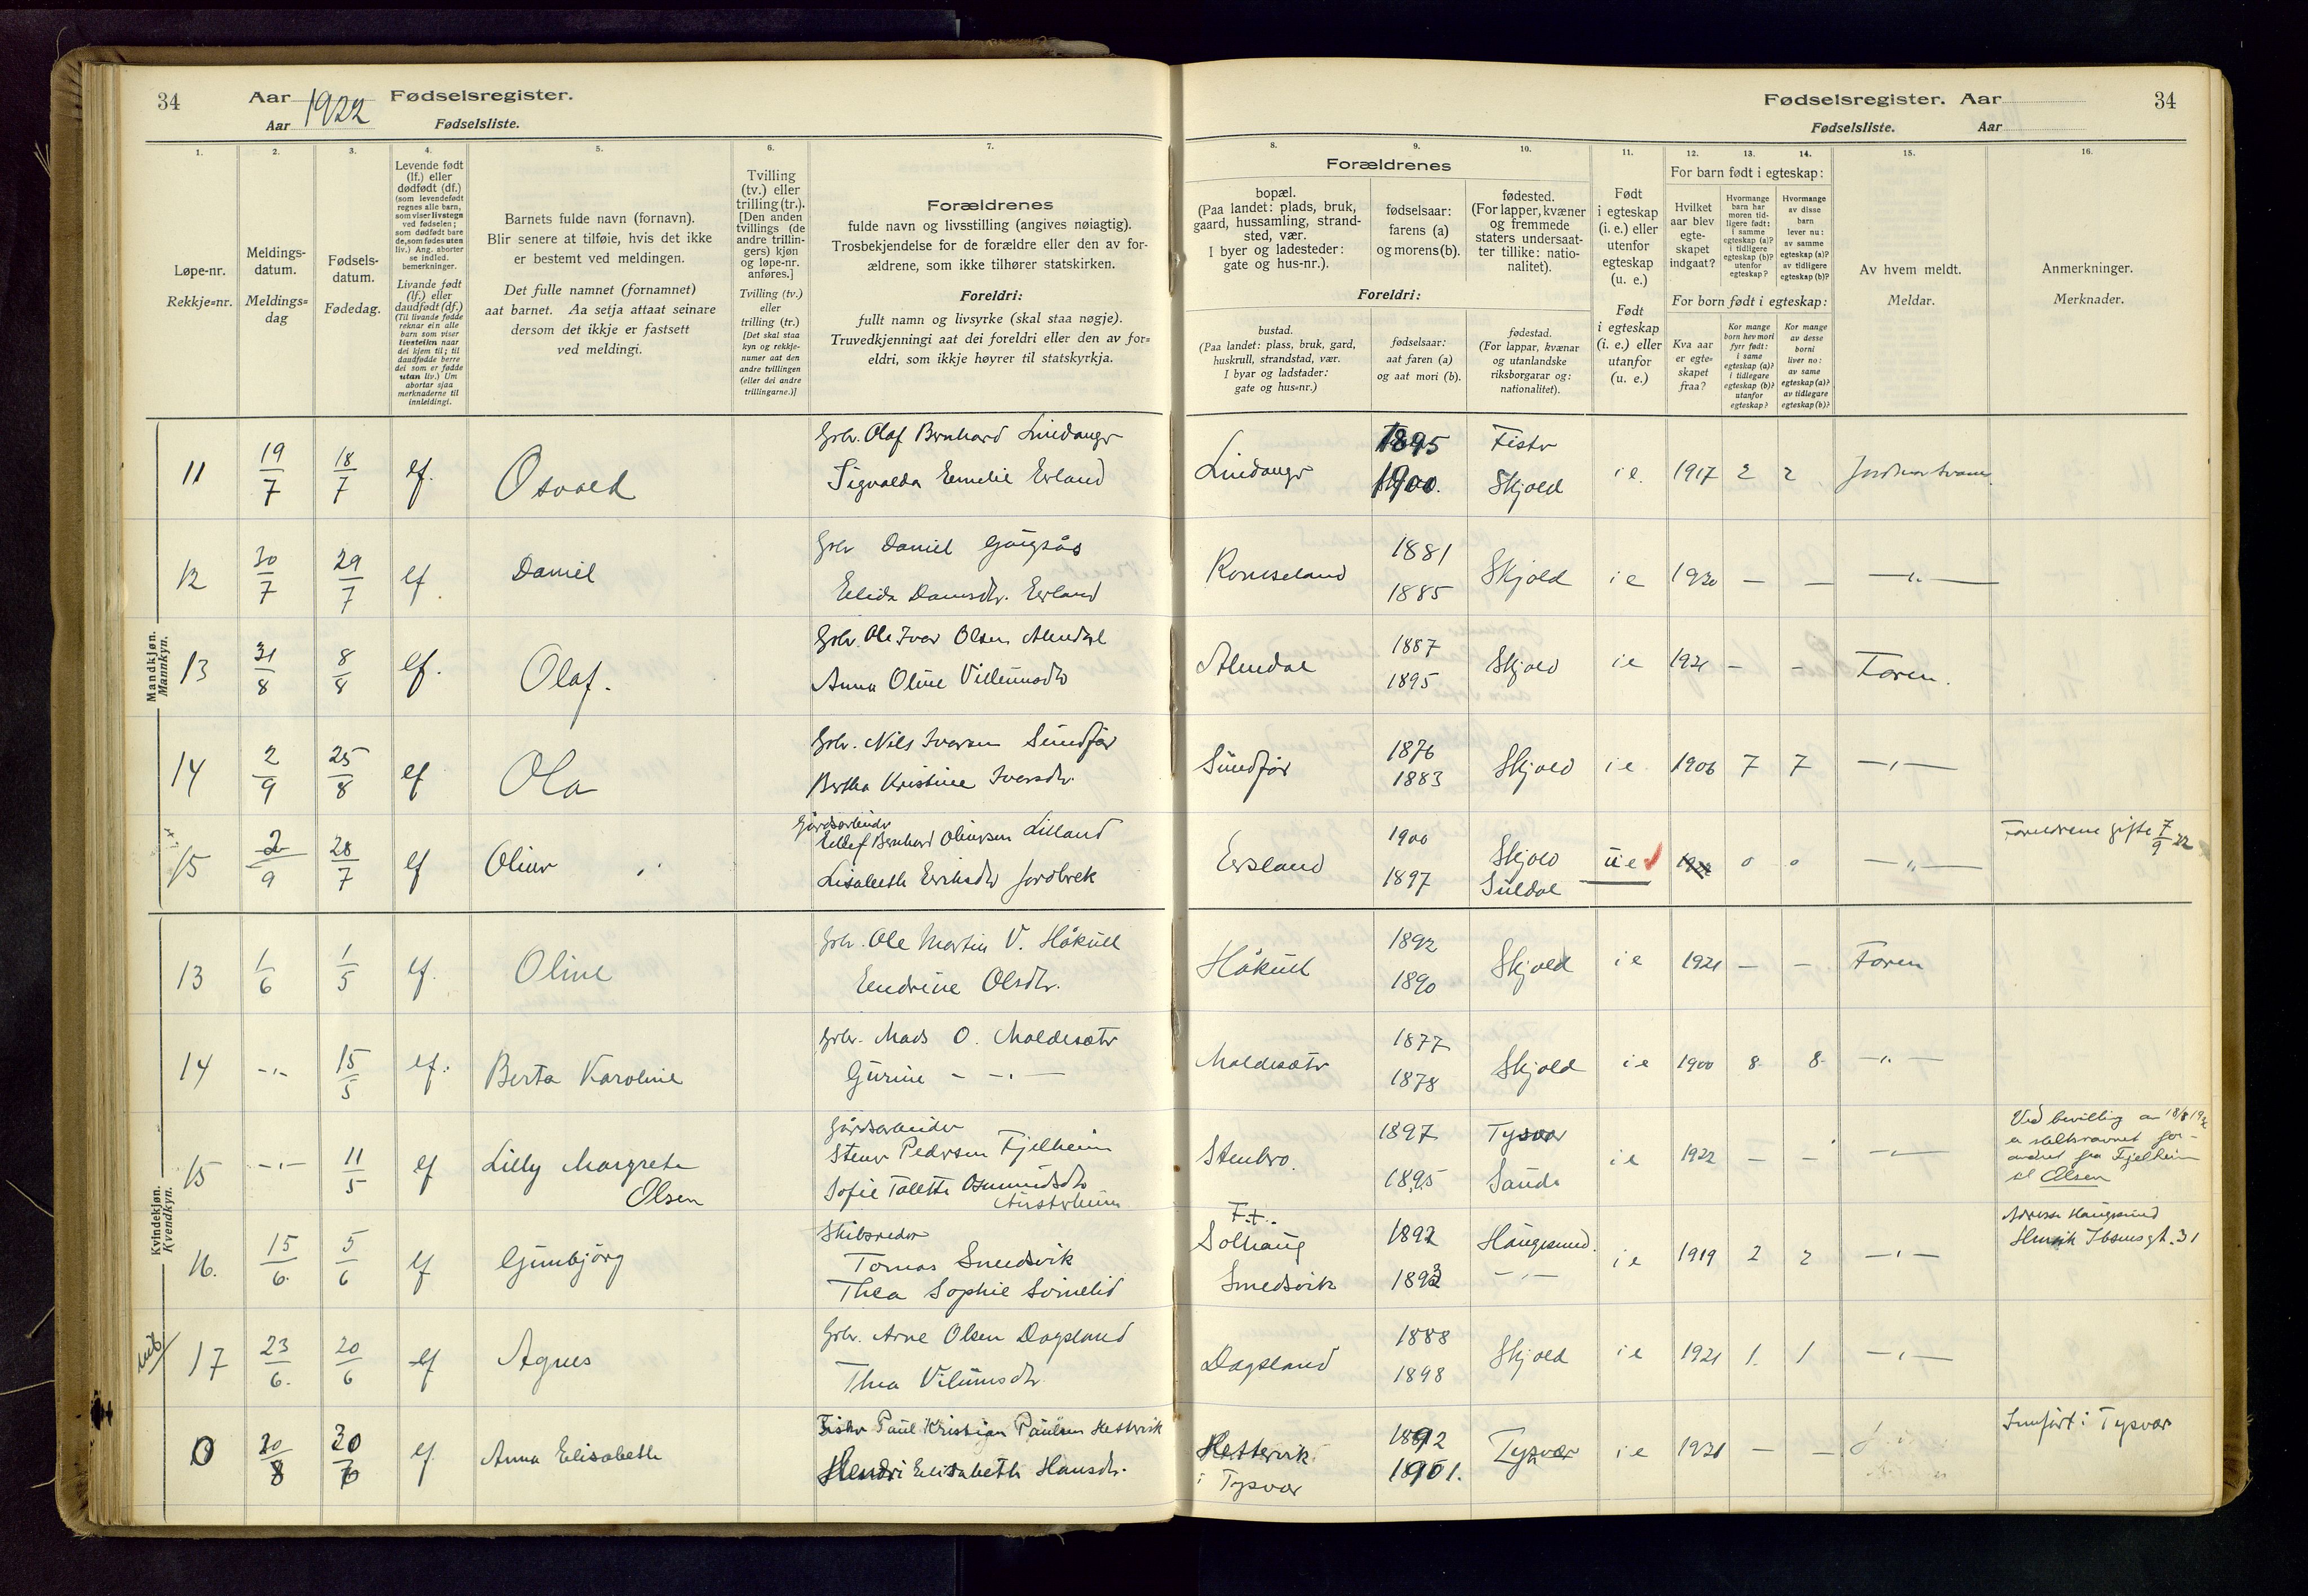 34
Aar 1922 Fødselsregister.
Aar Fødselsliste.
Fødselsregister. Aar
34
Fødselsliste. Aar
1.
2.
3.
4.
5.
6.
7.
8.
9.
10.
11.
12.
13.
14.
15.
16.
Løpe-nr.
Rekkje=nr.
Meldings-
datum.
Meldings=
dag
Fødsels-
datum.
Fødedag.
Levende født
(lf.) eller
dødfødt (df.)
(som levendefødt
regnes alle barn,
som viser livstegn
ved fødselen;
som dødfødt bare
de, som fødes uten
liv.) Ang. aborter
se indled.
bemerkninger.
Livande fødd
(lf.) eller
daudfødt (df.)
(Til livande fødde
reknar ein alle
barn som viser
livsteikn naar
dei kjem til; til
daudfødde berre
dei som er fødde
utan liv.) Um
abortar sjaa
merknaderne til
innleidingi.
Barnets fulde navn (fornavn).
Blir senere at tilføie, hvis det ikke
er bestemt ved meldingen.
Det fulle namnet (fornamnet)
aat barnet. Aa setja attaat seinare
dersom det ikkje er fastsett
ved meldingi.
Tvilling
(tv.) eller
trilling (tr.).
[Den anden
tvillings (de
andre trillin-
gers) kjøn
og løpe-nr.
anføres.]
Tvilling (tv.)
eller
trilling (tr.)
[Det skal staa
kyn og rekkje-
numer aat den
andre tvillingen
(eller dei andre
trillingarne.)]
Forældrenes
fulde navn og livsstilling (angives nøiagtig).
Trosbekjendelse for de forældre eller den av for-
ældrene, som ikke tilhører statskirken.
Foreldri:
fullt namn og livsyrke (skal staa nøgje).
Truvedkjenningi aat dei foreldri eller den av for=
eldri, som ikkje høyrer til statskyrkja.
Forældrenes
bopæl.
(Paa landet: plads, bruk,
gaard, hussamling, strand-
sted, vær.
I byer og ladesteder:
gate og hus-nr.).
fødselsaar:
farens (a)
og morens (b).
fødested.
(For lapper, kvæner
og fremmede
staters undersaat-
ter tillike: natio-
nalitet).
Foreldri:
bustad.
(Paa landet: plass, bruk, gard,
huskrull, strandstad, vær.
I byar og ladstader:
gate og hus=nr.)
fødselsaar:
aat faren (a)
og aat mori (b).
fødestad.
(For lappar, kvænar
og utanlandske
riksborgarar og:
nationalitet).
Født
i egteskap
(i. e.) eller
utenfor
egteskap
(u. e.)
Født
i egteskap
(i. e.) eller
utanfor
(u. e.)
For barn født i egteskap:
Hvilket
aar blev
egte-
skapet
indgaat?
Hvormange
barn har
moren tid-
ligere født:
i samme
egteskap (a)?
i tidligere
egteskap (b)?
utenfor
egteskap?
Hvormange
av disse
barn
lever nu:
av samme
egteskap (a)?
av tidligere
egteskap (b)?
For born født i egteskap:
Kva aar
er egte=
skapet
fraa?
Kor mange
born hev mori
fyrr født:
i same
egteskap (a)?
i tidlegare
egteskap (b)?
utanfor
egteskap?
Kor mange
av desse
borni
liver no:
av same
egteskap (a)?
av tidlegare
egteskap (b)?
Av hvem meldt.
Meldar.
Anmerkninger.
Merknader.
Mandkjøn.
Mannkyn.
11 19/7 18/7 lf. Osvald Grbr. Olaf Bernhard Lindanger Lindanger 1895 Fister i e. 1917 2 2
Sigvalda Emelie Erland 1900. Skjold
12 30/7 29/7 lf. Daniel Grbr Daniel 1881 Skjold i e 1920 — — —„—
Elida Erland Romseland 1885
13 31/8 8/8 lf. Olaf. Grbr. Ole Ivar Olsen Alendal Alendal 1887 Skjold i e 1921 – – Faren.
Anna Oline 1895
14 2/9 25/8 lf Ola Grbr. Nils Iversen Sundfør Sundfør 1876 Skjold i e. 1906 7 7 —„—
Bertha Kristine Iversdtr. 1883
15 2/9 28/7 lf Oliver Gårdsarbeider
Bernhard Oliversen Lilland Ersland 1900 Skjold u e 0 0 —„— Foreldrene gifte 7/9 22
Lisabeth Eriksdtr 1897 Suldal
Kvindekjøn.
Kvendkyn.
13 1/6 1/5 lf. Oline Grbr. Ole Martin V. Håkull Håkull 1892 Skjold i e 1921 – – Faren
Endrine Olsdtr. 1890
14 –„– 15/5 lf. Berta Karoline Grbr. Mads O. Moldesæter Moldesæter 1877 Skjold i e 1900 8 8 –„–
Gurine – –„– 1878
15 –„– 11/5 lf Lilly Margrete Olsen Gårdsarbeider
Pedersen Fjelheim Stenbro. 1897 Tysvær i e 1922 – – –„–
Sofie Tolette Osmundsdtr 1895 Sauda
Ved bevilling av 18/8 19
er slektsnavnet for-
andret fra Fjelheim
til Olsen
16. 15/6. 5/6 lf Gunbjörg Skibsreder
Tomas Smedsvik F.t. Solhaug 1892 Haugesund. i e 1919 2 2 –„–
Thea Sophie Smedsvik 1893 –„–
Adresse Haugesund
Henrik Ibsensgt. 31
17 23/6. 20/6 lf Agnes Grbr. Arne Olsen Dagsland Dagsland 1888 Skjold i e 1921 1. 1 –„–
Thea 1898
0 20/8 30/6 lf. Anna Elisabeth Fisker Paul Kristian Paulsen Hettervik Hettervik 1892 Tysvær i e 1921 — — Innført i Tysvær
Hendri Elisabeth Hansdtr. i Tysvær 1901.